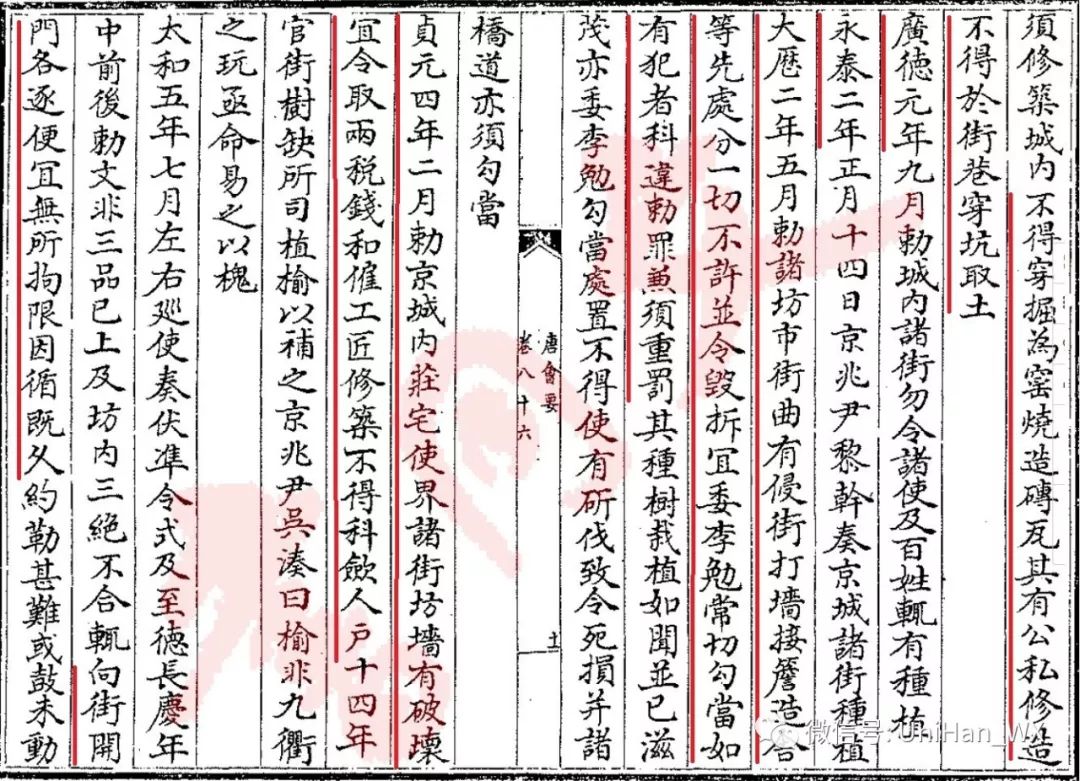 須修築城內不得穿掘為窑燒造磚瓦其有公私修造
不得於街巷穿坑取土
廣德元年九月勅城內諸街勿令諸使及百姓輒有種植
永泰二年正月十四日京兆尹黎幹奏京城諸街種植
大歷二年五月勅諸坊市街曲有侵街打墻接簷造舍
等先處分一切不許並令毀拆宜委李勉常切勾當如
有犯者科違勅罪兼須重罰其種樹栽植如聞並已滋
茂亦委李勉勾當處置不得使有斫伐致令死損并諸
橋道亦須勾當
唐會要
卷八十六
土
貞元四年二月勅京城內莊宅使界諸街坊墻有破壞
宜令取兩税錢和雇工匠修築不得科斂人户十四年
官街樹缺所司植榆以補之京兆尹吳湊曰榆非九衢
之玩亟命易之以槐
太和五年七月左右廵使奏伏準令式及至德長慶年
中前後勅文非三品已上及坊內三絶不合輒向街開
門各逐便宜無所拘限因循既久約勒甚難或鼓未動
微信号: UniHan_W